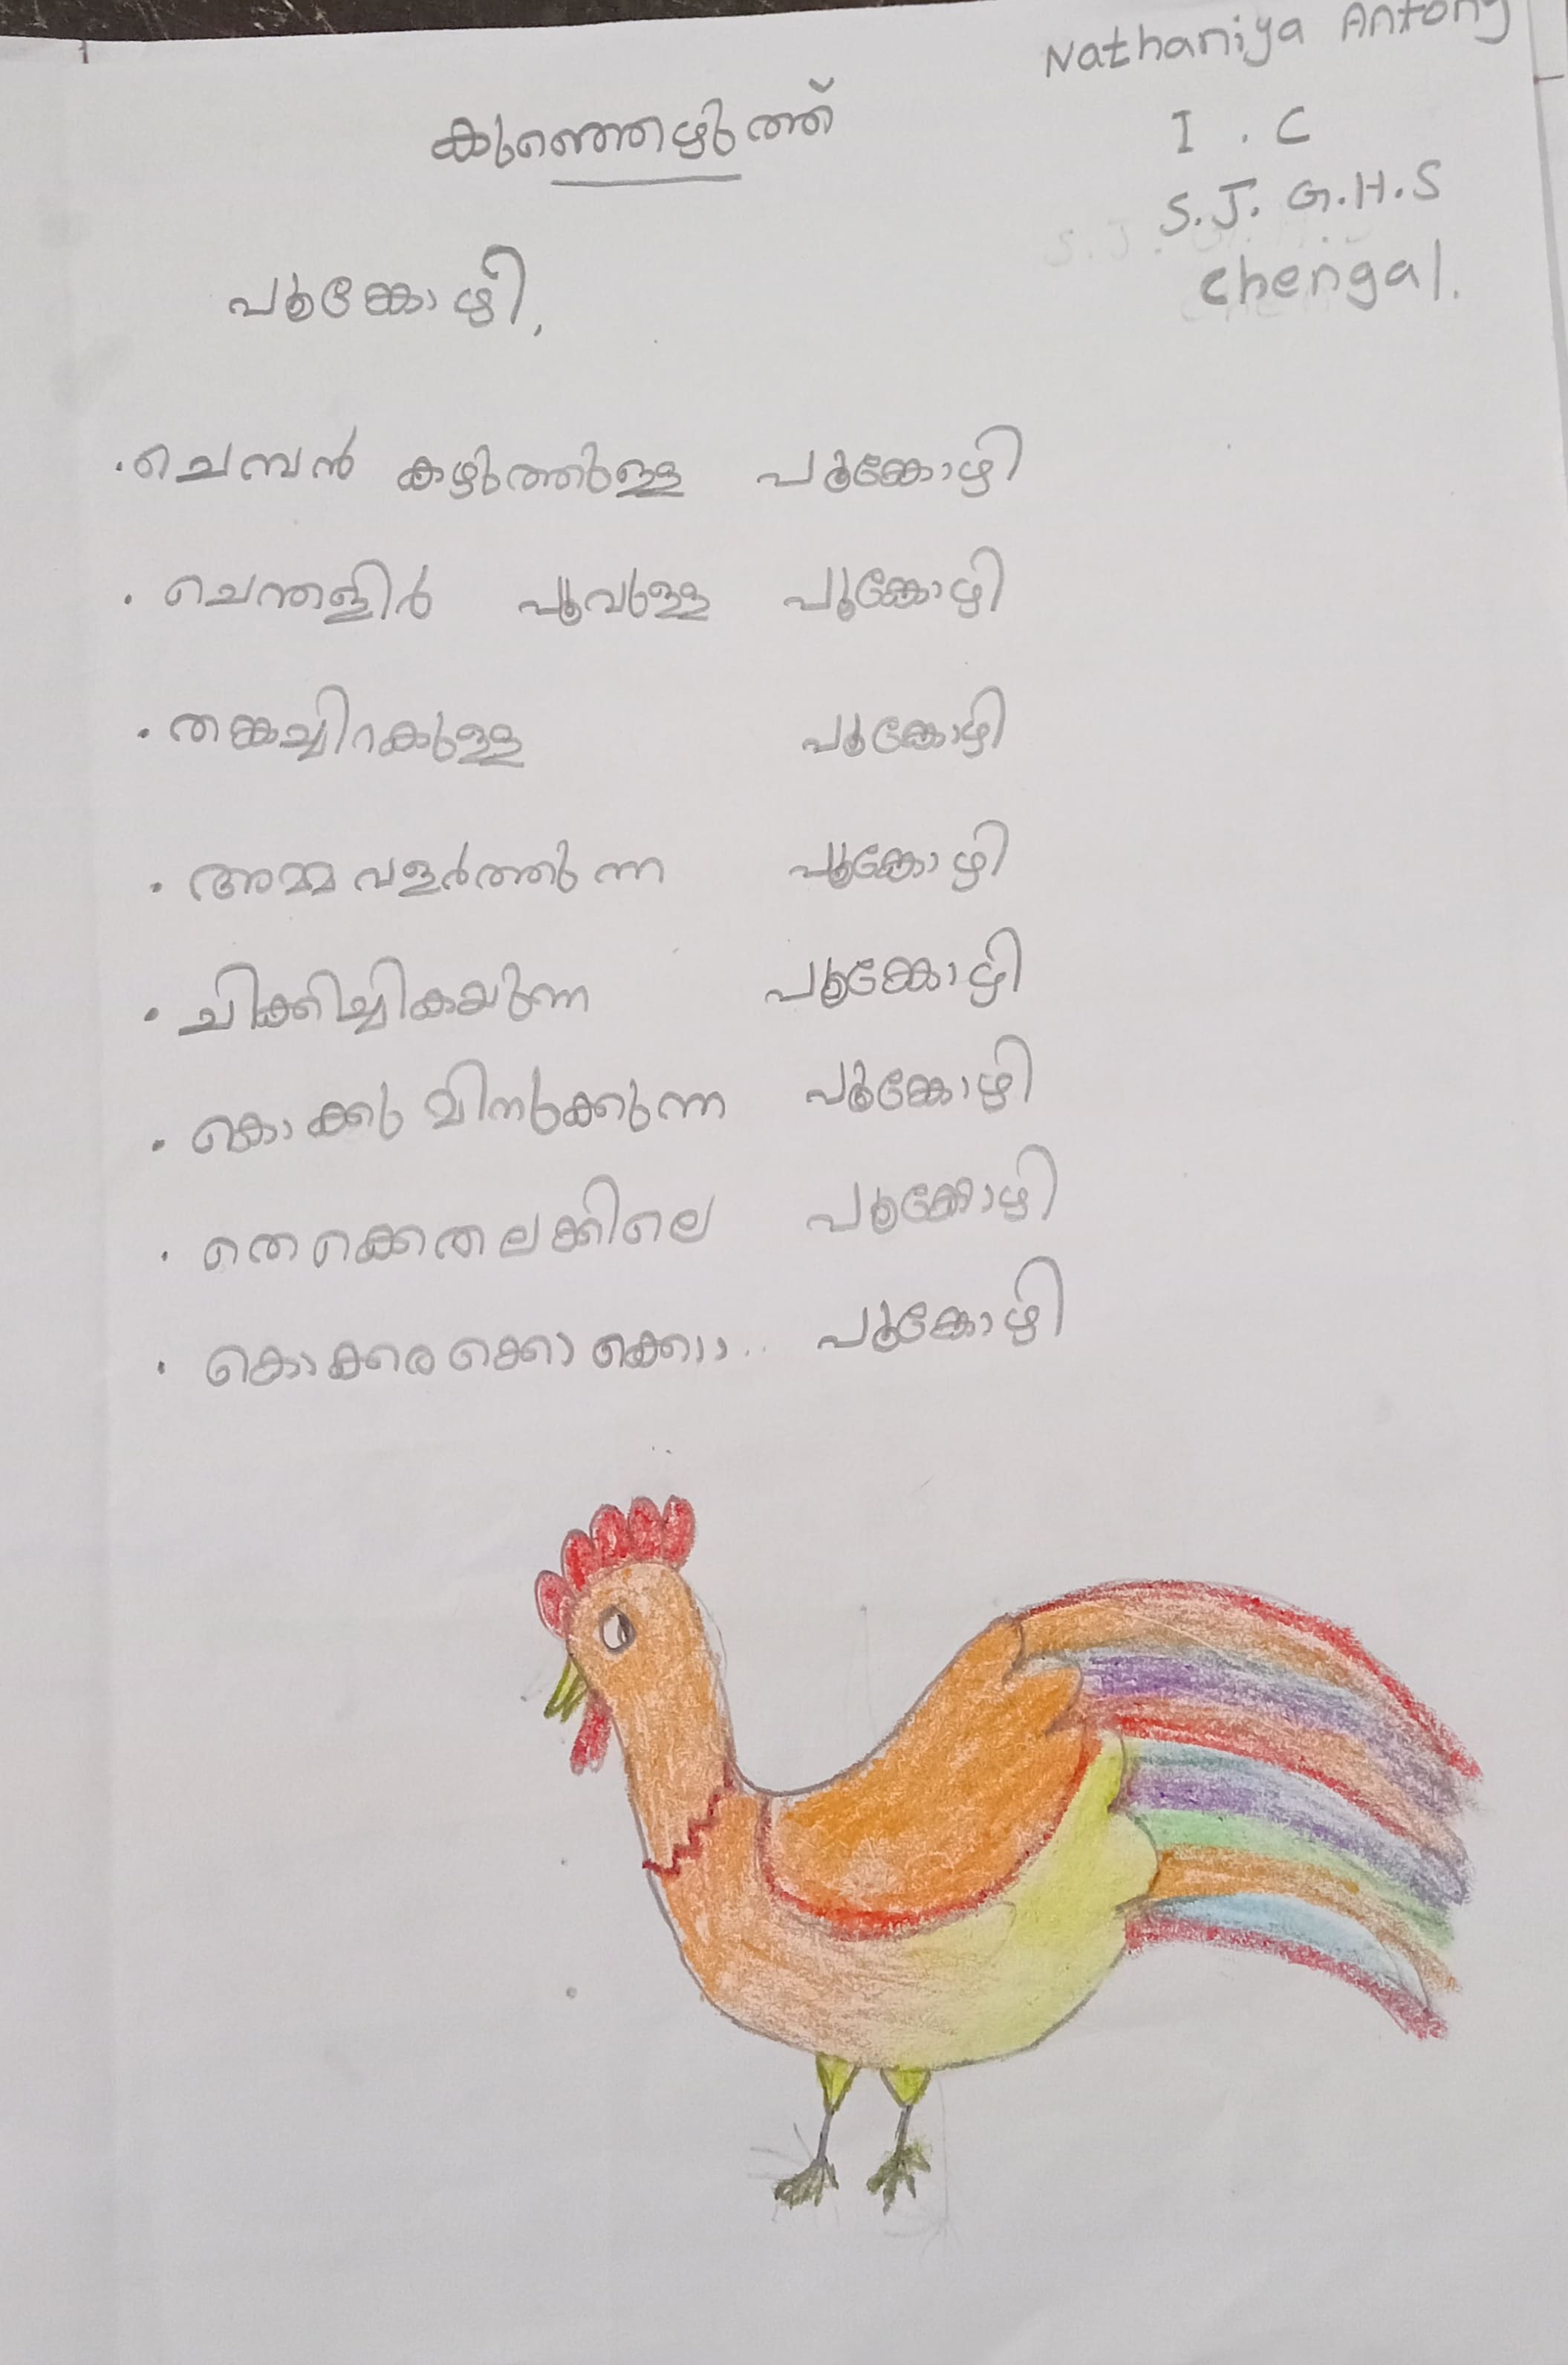 Nathaniya Antony
കുഞ്ഞെഴുത്ത്
I . C
S.J. G.H.S
Chengal.
പൂങ്കോഴി,
. ചെമ്പൻ കഴുത്തുള്ള പൂങ്കോഴി
. ചെന്തളിർ പൂവുള്ള പൂങ്കോഴി
. തങ്കച്ചിറകുള്ള പൂങ്കോഴി
. അമ്മ വളർത്തുന്ന പൂങ്കോഴി
. ചിക്കിച്ചികയുന്ന പൂങ്കോഴി
. കൊക്കു മിനുക്കുന്ന പൂങ്കോഴി
. തെക്കെതലക്കിലെ പൂങ്കോഴി
. കൊക്കരക്കൊക്കൊ.. പൂങ്കോഴി